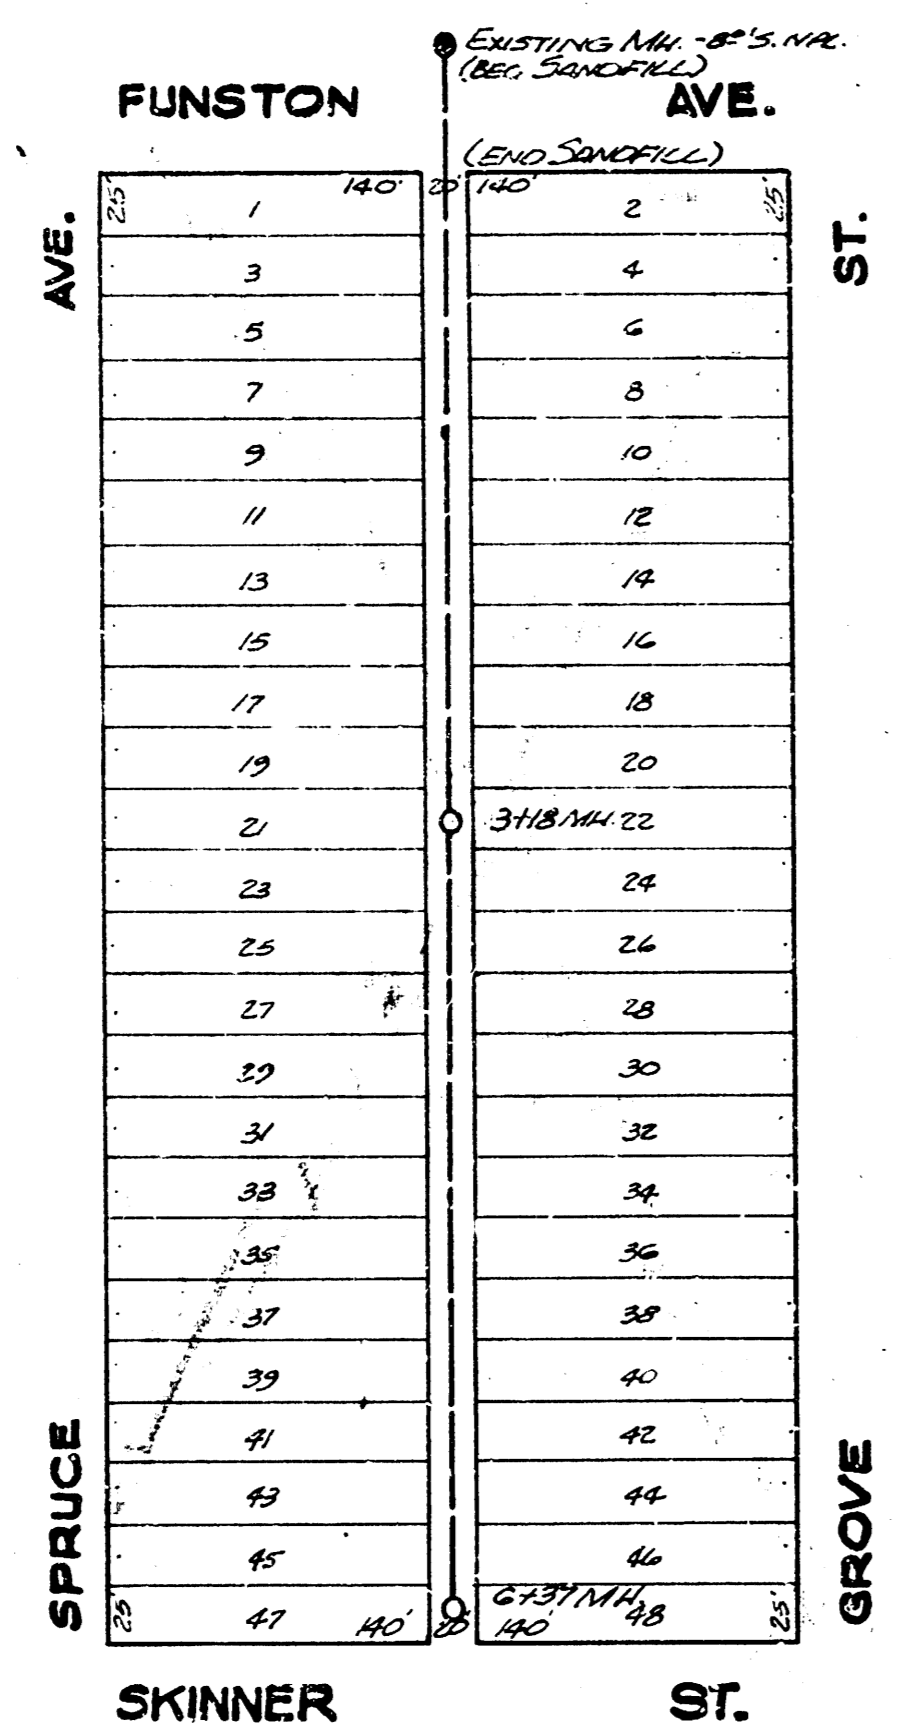 EXISTING MH. -8º'S. NPL.
(BEG SANDFILL)
FUNSTON AVE.
(END SANDFILL)
25' 140' 20' 140' 25'
1 2
AVE. ST.
3 4
5 6
7 8
9 10
11 12
13 14
15 16
17 18
19 20
21 3+18 MH. 22
23 24
25 26
27 28
29 30
31 32
33 34
35 36
37 38
39 40
41 42
43 44
45 46
SPRUCE GROVE
6+37 MH.
25' 47 140' 20' 140' 48 25'
SKINNER ST.